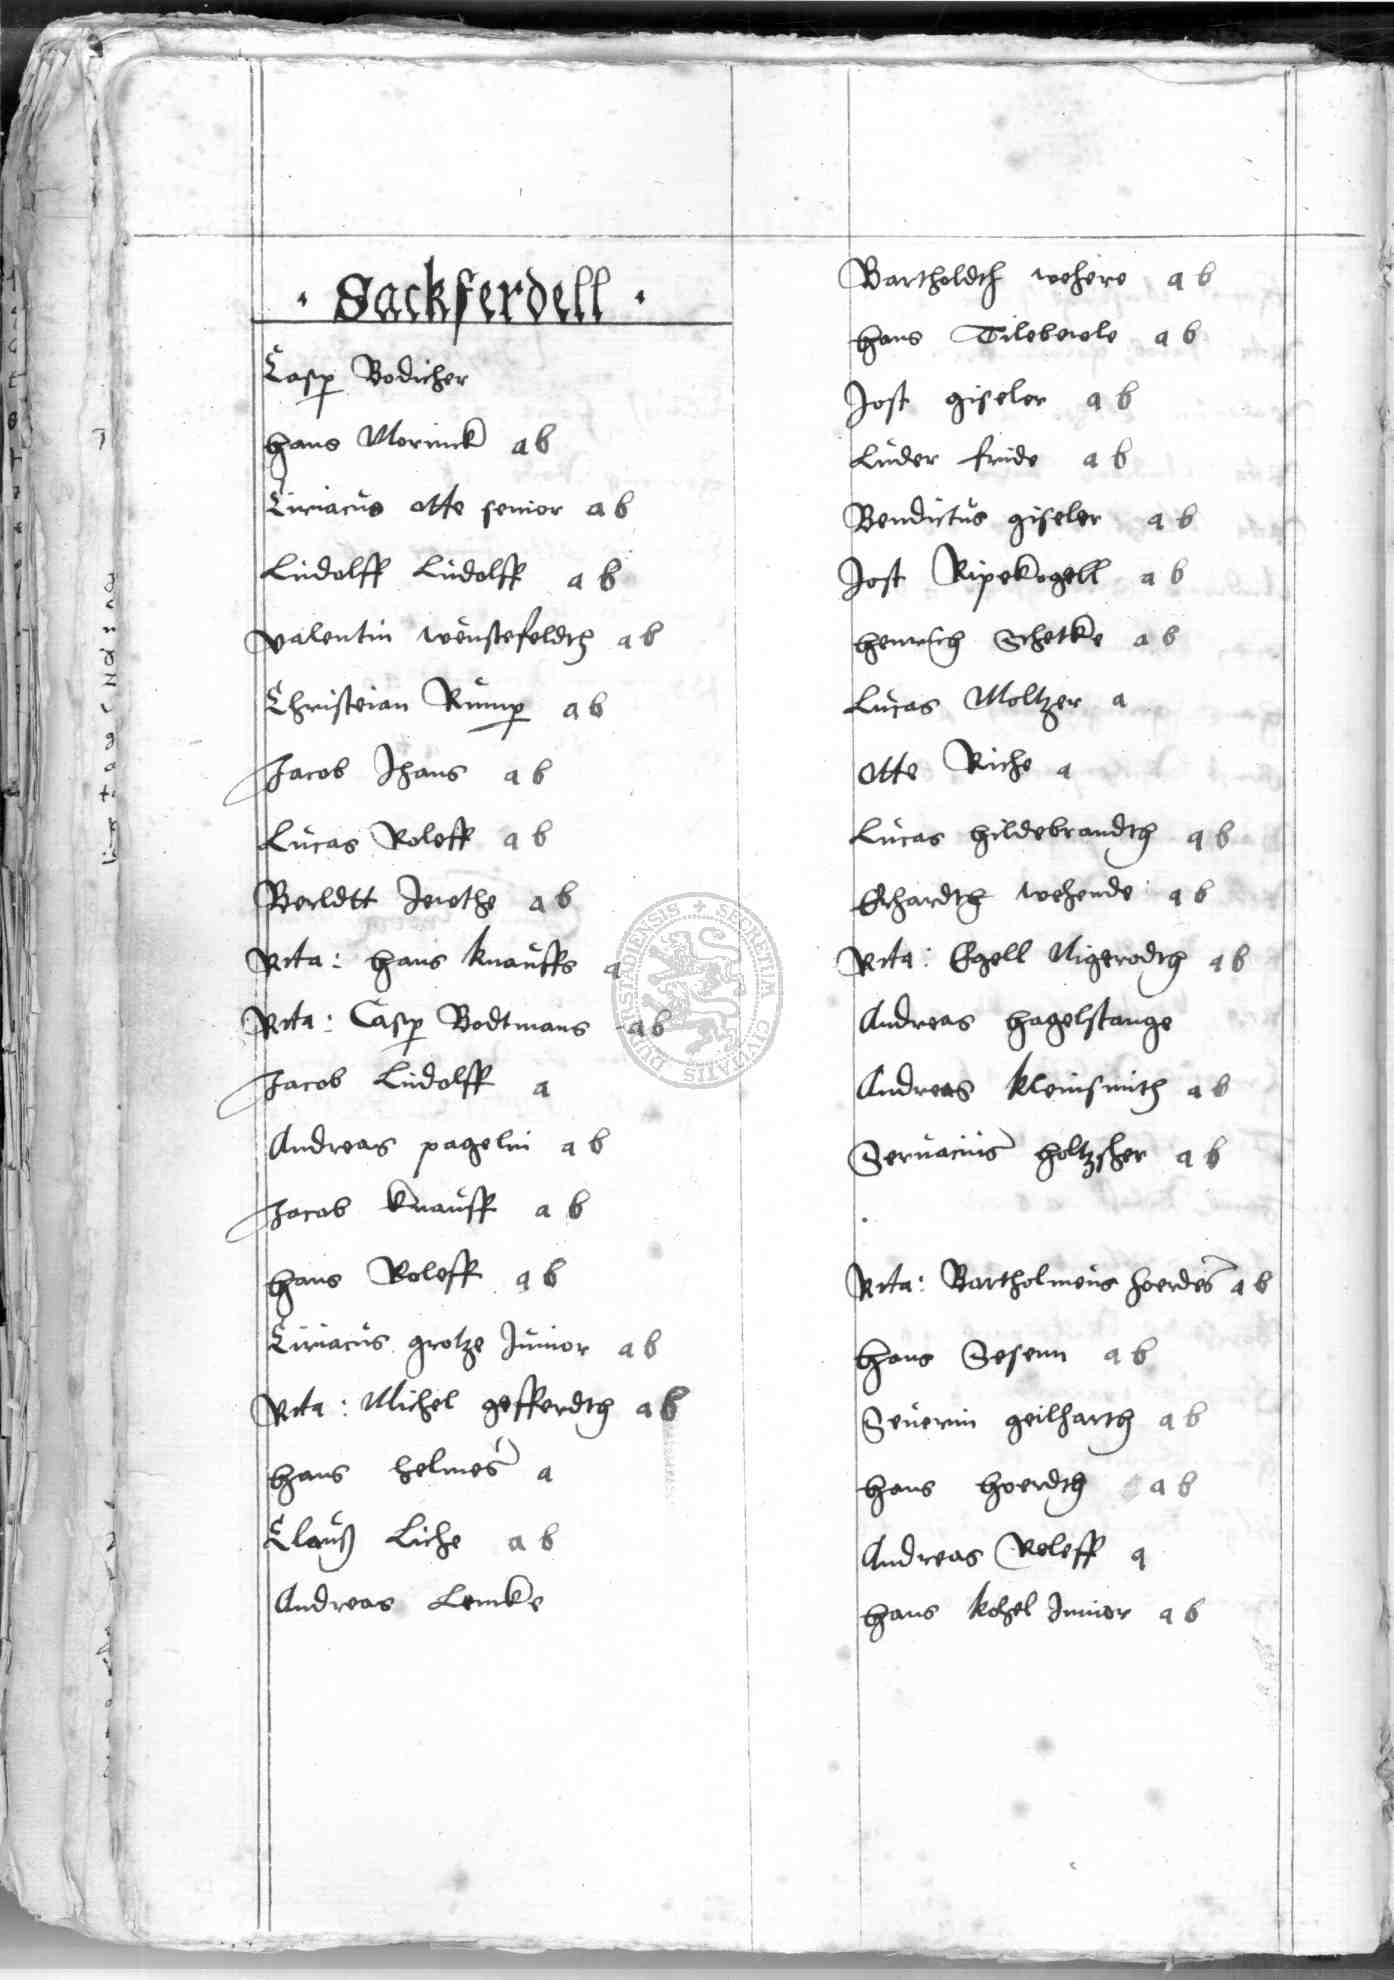 · Sackferdell ·
Casp Bodicher
hans Morinck a b
Ciriacus otte senior a b
Ludolff Ludolff a b
Valentin wenstefeldth a b
Christian Rump a b
Jacob Jhans a b
Lucas Roleff a b
Berldtt Jerothe a b
Rcta: hans knauffs a
Rcta: Casp Bodtmans a b
Jacob Ludolff a
Andreas pagelin a b
Jacob knauff a b
hans Roleff a b
Ciriacus grotze Junior a b
Rcta: Michel gefferdth a b
hans helmes a
Clauß Liche a b
Andreas Lemke
Bartholdth wehere a b
hans a b
Jost giseler a b
Luder fride a b
Bendictus giseler a b
Jost Ripekogell a b
henrich Schetke a b
Lucas Moltzer a
otte Riche a
Lucas hildebrandth a b
Erhardth wehende a b
Rcta: Egell Nigerodth a b
Andreas hagelstange
Andreas kleinsmith a b
Seruacius holtzsher a b
Rcta: Bartholmeus hoerdes a b
hans Sesenn a b
Seuerin geilharth a b
hans hoerdth a b
Andreas Roleff a
hans kohel Junior a b
SECRETUM CIVITATIS DUDERSTADIENSIS